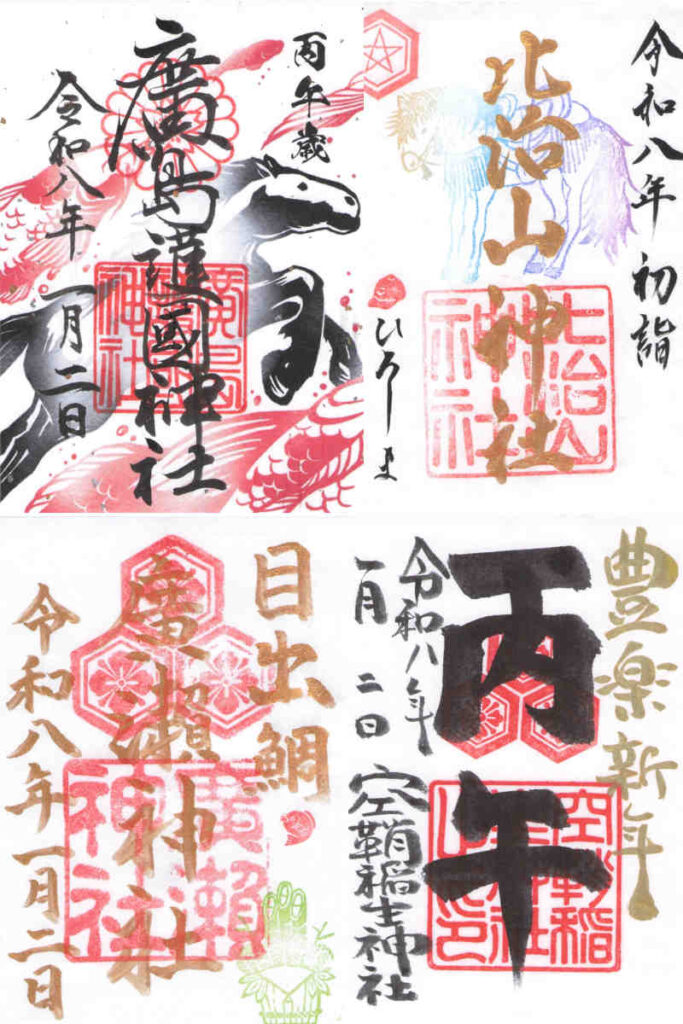 丙午歳
廣島護國神社
令和八年
一月二日
廣島護國神社
令和八年 初詣
比治山神社
比治山神社
ひろしま
目出鯛
廣瀬神社
令和八年一月二日
廣瀬神社
豊楽新年
丙午
令和八年
一月二日
空鞘稲生神社